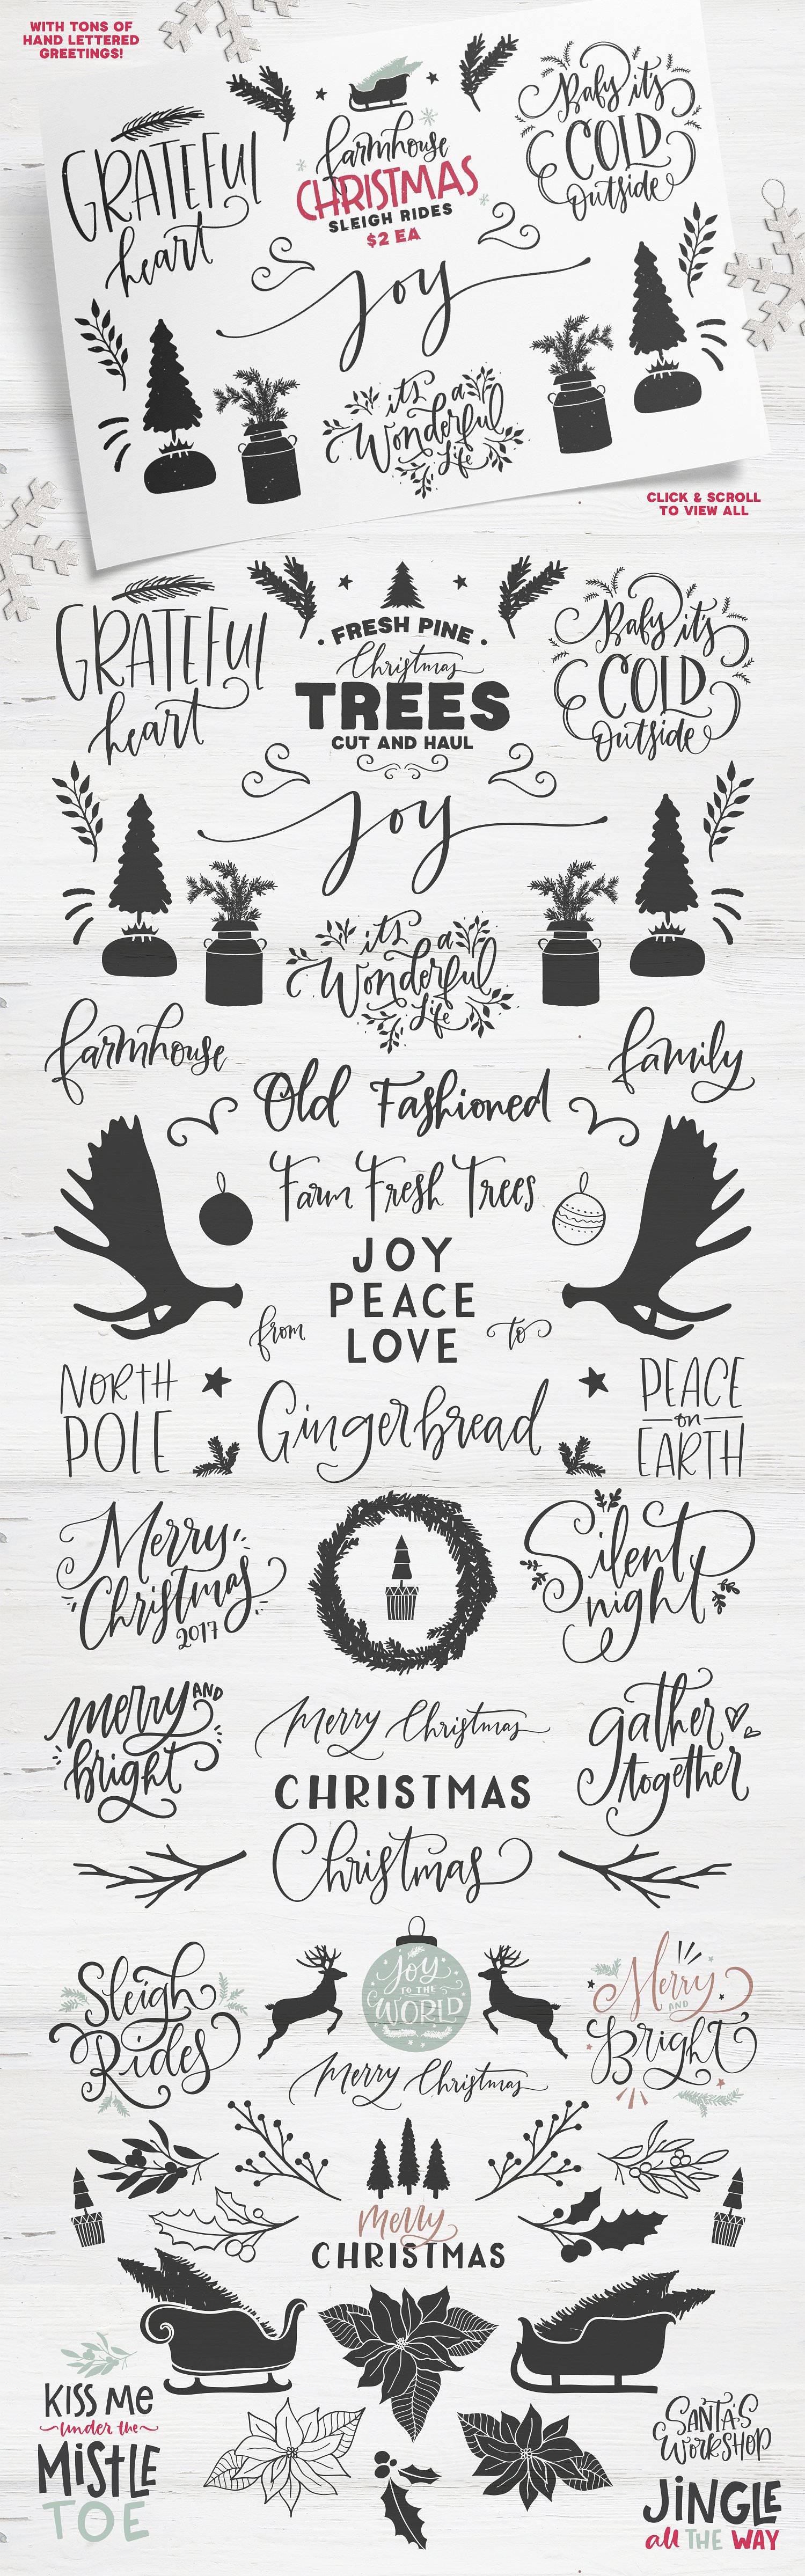 WITH TONS OF
HAND LETTERED
GREETINGS!
GRATEFUL
heart
farmhouse
CHRISTMAS
SLEIGH RIDES
$2 EA
Baby it's
COLD
Outside
joy
it's a
Wonderful
Life
CLICK & SCROLL
TO VIEW ALL
GRATEFUL
heart
FRESH PINE
Christmas
TREES
CUT AND HAUL
Baby it's
COLD
Outside
joy
it's a
Wonderful
Life
farmhouse
family
Old Fashioned
Farm Fresh Trees
JOY
PEACE
LOVE
from
to
NORTH
POLE
Gingerbread
PEACE
on
EARTH
Merry
Christmas
2017
Silent
night
merry AND
bright
Merry Christmas
CHRISTMAS
Christmas
gather
together
Sleigh
Rides
joy
TO THE
WORLD
Merry Christmas
Merry
AND
Bright
merry
CHRISTMAS
KISS ME
under the
MISTLE
TOE
SANTA'S
WORKSHOP
JINGLE
all THE WAY